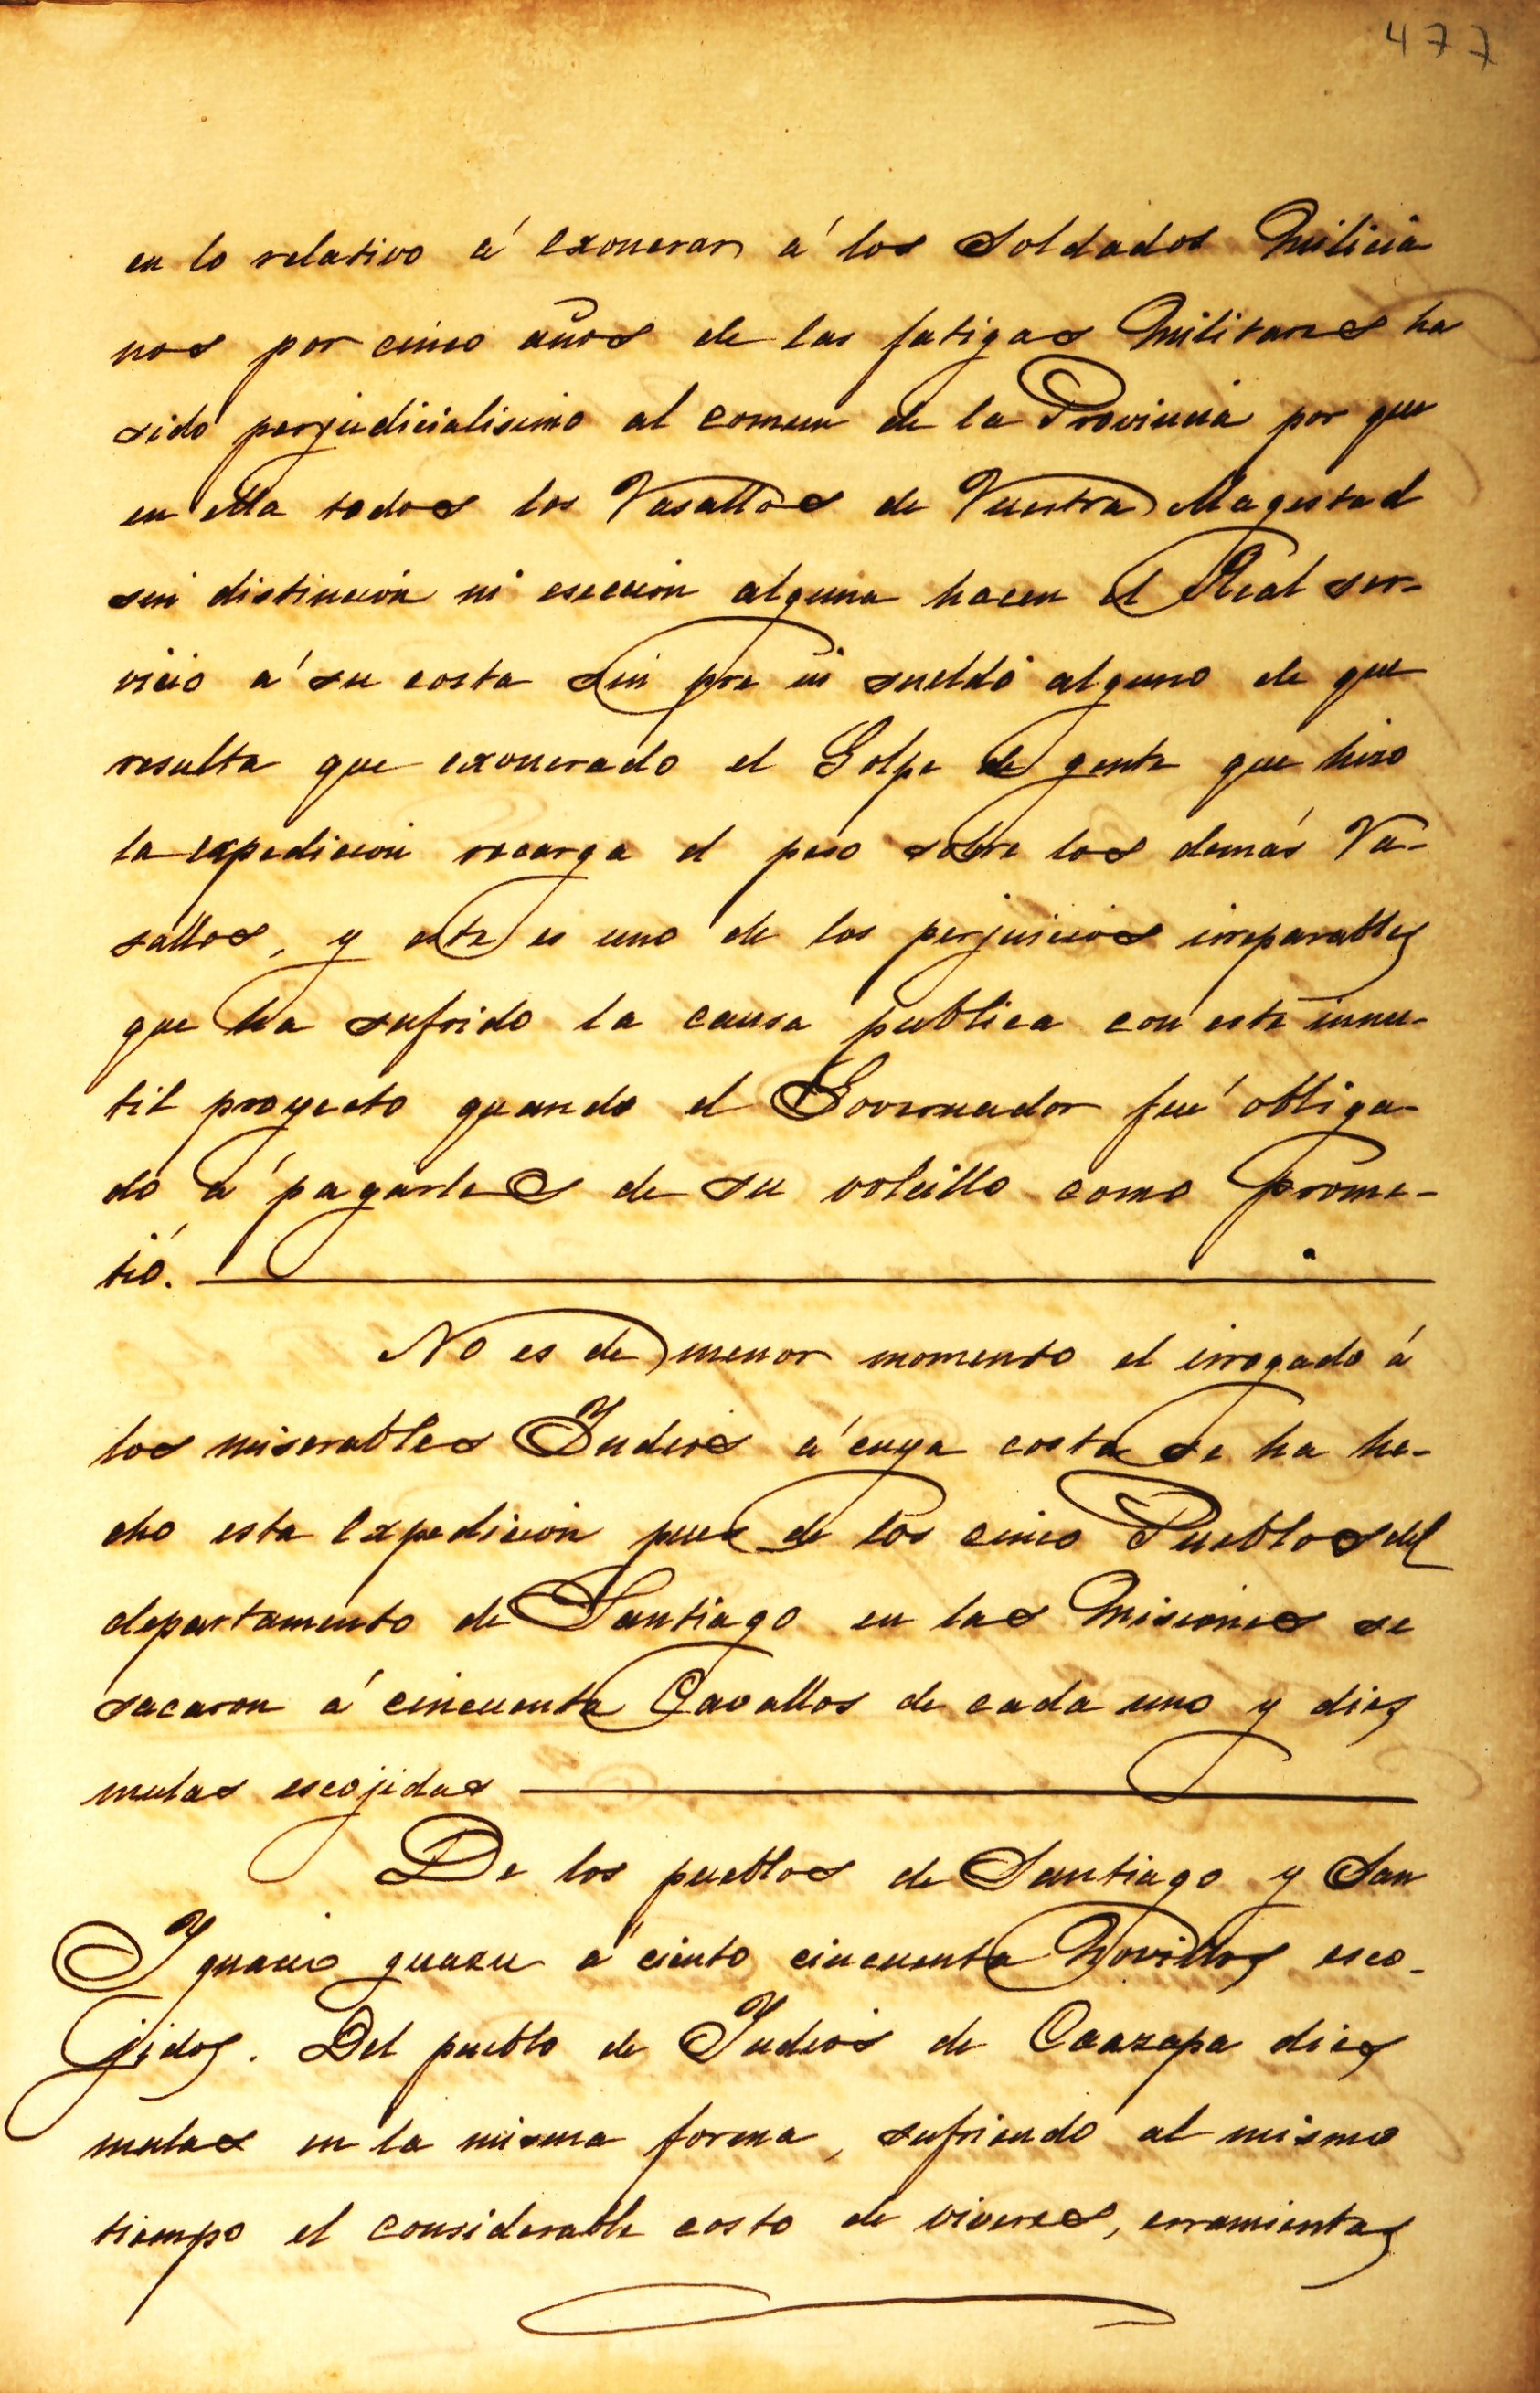 477
en lo relativo á exonerar á los Soldados Milicia
nos por cinco años de las fatigas Militares ha
sido perjudicialisimo al comun de la Provincia por que
en ella todos los Vasallos de Vuestra Magestad
sin distinción ni esección alguna hacen el Real ser-
vicio á su costa sin pre ni sueldo alguno de que
resulta que exonerado el Golpe de gente que hizo
la expedición recarga el peso sobre los demás Va-
sallos, y este es uno de los perjuicios irreparables
que ha sufrido la causa publica con este innu-
til proyecto quando el Governador fué obliga-
do á pagarles de su volcillo como prome-
tió.
No es de menor momento el irrogado á
los miserables Yndios á cuya costa se ha he-
cho esta expedición pues de los cinco Pueblos del
departamento de Santiago en las Misiones se
sacaron á cincuenta Cavallos de cada uno y dies
mulas escojidas
De los pueblos de Santiago y San
Ygnacio guazu á ciento cincuenta Novillos esco-
jidos. Del pueblo de Yndios de Caazapa dies
mulas en la misma forma, sufriendo al mismo
tiempo el considerable costo de viveres, erramientas